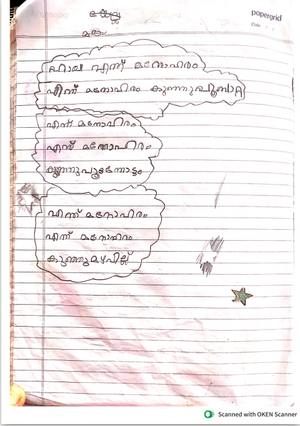 papergrid
മഴ
ഹായ എന്ത് മനോഹരം
എന്ത് മനോഹരം കുഞ്ഞുപൂമ്പാറ്റ
എന്ത് മനോഹരം
എന്ത് മനോഹരം
കുഞ്ഞുപൂന്തോട്ടം
എന്ത് മനോഹരം
എന്ത് മനോഹരം
കുഞ്ഞുമഴവില്ല്
Scanned with OKEN Scanner